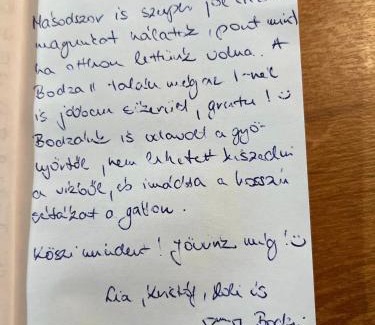 Másodszor is szuper jól
magunkat nálatok, pont mint
ha otthon lettünk volna. A
Bodza II talán még az I-nél
is jobban
Bodzánk is odavolt a gyö-
nyörtől, nem lehetett kiszedni
a vízből, és imádta a hosszú
sétákat a gáton.
Köszi mindent! Jövünk még! :)
Lia, Kristóf, és
Bodza